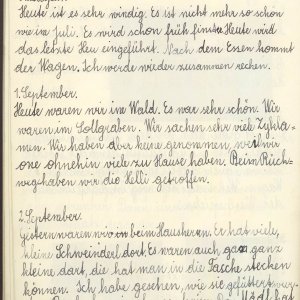 Heute ist es sehr windig. Es ist nicht mehr so schön
wie im Juli. Es wird schon früh finster. Heute wird
das letzte Heu eingeführt. Nach dem Essen kommt
der Wagen. Ich werde wieder zusammen rechen.
1. September.
Heute waren wir im Wald. Es war sehr schön. Wir
waren im Sollgraben. Wir sachen sehr viele Zykla-
men. Wir haben aber keine genommen, weil wir
one ohnehin viele zu Hause haben. Beim Rück-
weg haben wir die Helli getroffen.
2. September.
Gestern waren wir beim Hausherrn. Er hat viele,
kleine Schweinderl dort. Es waren auch ganz ganz
kleine dort, die hat man in die Tasche stecken
können. Ich habe gesehen, wie sie gefüttert